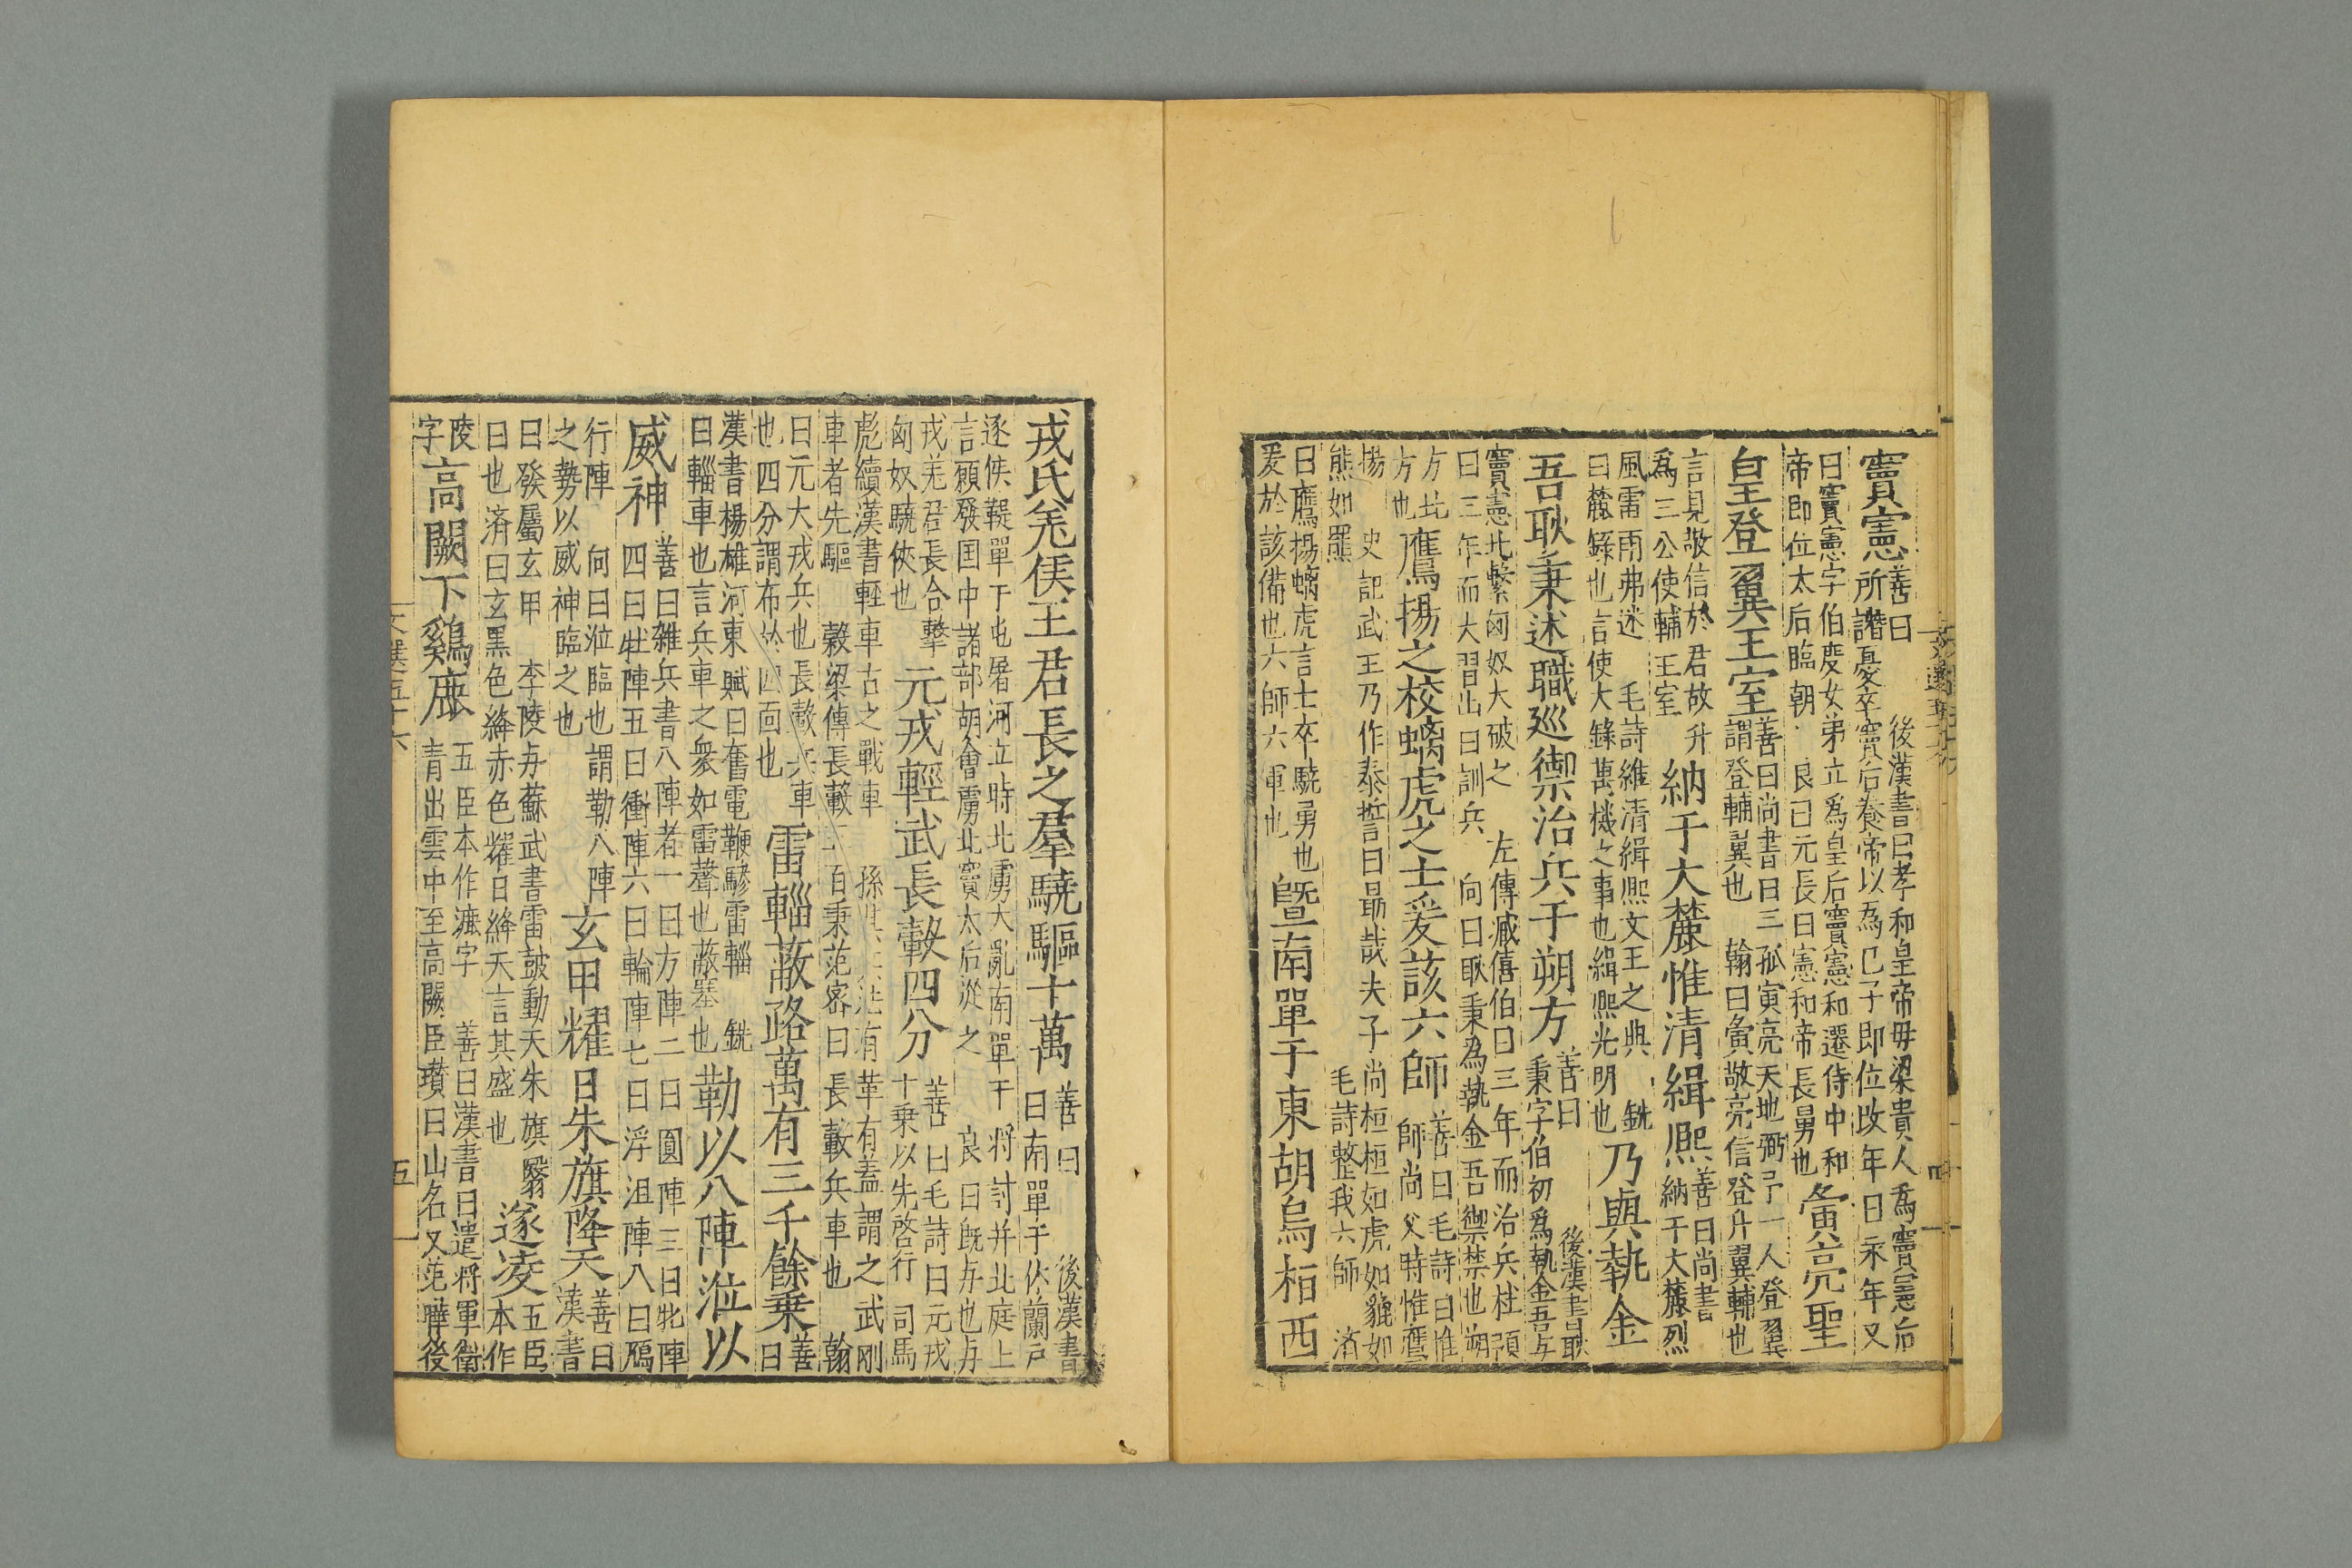 竇憲善曰 後漢書曰孝和皇帝毋梁貴人爲竇憲后
所譖憂卒竇后養帝以爲己子即位改年曰永年又
曰竇憲字伯度女弟立爲皇后竇憲和遷侍中和
帝即位太后臨朝 良曰元長曰憲和帝長舅也
寅亮聖
皇登翼王室
善曰尚書曰三孤寅亮天地弼予一人登翼
謂登輔翼也 翰曰寅敬亮信登升翼輔也
言見敬信於君故升
爲三公使輔王室
納于大麓惟清緝熙
善曰尚書
納于大麓烈
風雷雨弗迷 毛詩維清緝熙文王之典 銑
曰麓錄也言使大錄萬機之事也緝熙光明也
乃與執金
吾耿秉述職巡禦治兵于朔方
善曰 後漢書曰耿
秉字伯初爲執金吾与
竇憲北擊匈奴大破之 左傳臧僖伯曰三年而治兵杜預
曰三年而大習出曰訓兵 向曰耿秉爲執金吾禦禁也朔
方北
方也
鷹揚之校螭虎之士爰該六師
善曰毛詩曰惟
師尚父時惟鷹
揚 史記武王乃作泰誓曰勗哉夫子尚桓桓如虎如貔如
熊如羆 毛詩整我六師 済
曰鷹揚螭虎言士卒驍勇也
爰於該備也六師六軍也
暨南單于東胡烏桓西
戎氐羌侯王君長之羣驍驅十萬
善曰 後漢書
曰南單于休蘭尸
逐侯鞮單于屯屠河立時北虜大亂南單于將討并北庭上
言願發囯中諸部胡會虜北竇太后從之 良曰既与也与
戎羌君長合擊
匈奴驍俠也
元戎輕武長轂四分
善曰毛詩曰元戎
十乗以先啓行 司馬
彪續漢書輕車古之戰車 孫 有革有蓋謂之武剛
車者先驅 穀梁傳長轂 百乗范寗曰長轂兵車也 翰
曰元大戎兵也長轂兵車
也四分謂布於四面也
雷輜蔽路萬有三千餘乗
善
曰
漢書楊雄河東賦曰奮電鞭驂雷輜 銑
曰輜車也言兵車之衆如雷聲也蔽塞也
勒以八陣涖以
威神
善曰雜兵書八陣者一曰方陣二曰圓陣三曰牝陣
四曰牡陣五曰衝陣六曰輪陣七曰浮沮陣八曰鴈
行陣 向曰涖臨也謂勒八陣
之勢以威神臨之也
玄甲耀日朱旗降天
善曰
漢書
曰發屬玄甲 李陵与蘇武書雷鼓動天朱旗翳
日也済曰玄黑色絳赤色耀日絳天言其盛也
遂凌
五臣
本作
陵
字
高闕下鷄鹿
五臣本作漉字 善曰漢書曰遣將軍衛
青出雲中至高闕臣瓚曰山名又范曄後
文選五十六
五